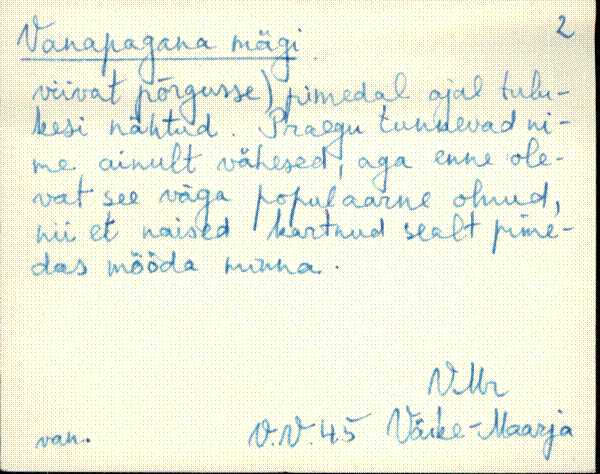 2
Vanapagana mägi
viivat põrgusse) pimedal ajal tulu-
kesi nähtud. Praegu tunnevad ni-
me ainult vähesed, aga enne ole-
vat see väga populaarne olnud,
nii et naised kartnud sealt pime-
das mööda minna.
VMr
van. V.V. 45 Väike-Maarja